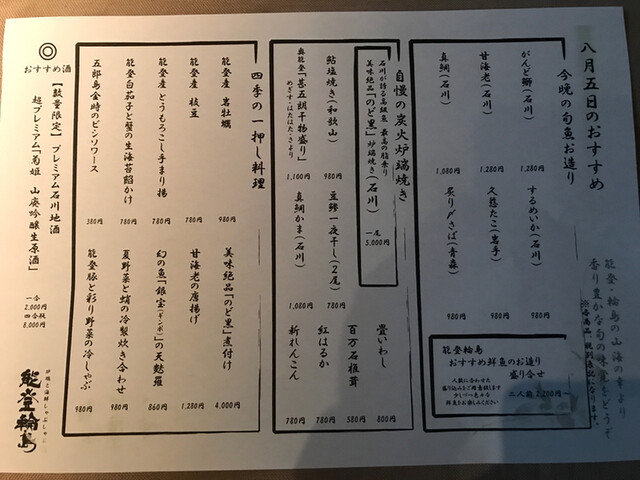 八月五日のおすすめ
能登・輪島の山海の幸
香り豊かな旬の味覚をどうぞ
今晩の旬魚お造り
がんど鰤(石川)
1,280円
甘海老(石川)
1,280円
真鯛(石川)
1,080円
するめいか(石川)
980円
久慈たこ(岩手)
980円
炙り〆さば(青森)
980円
能登輪島
おすすめ鮮魚のお造り
盛り合せ
人数に合わせた
盛り込みもご用意致します
少しづつ色々な
鮮魚をお愉しみください
二人前 2,200円〜
自慢の炭火炉端焼き
石川が誇る高級魚 最高の脂乗り
美味絶品「のど黒」炉端焼き(石川)
一尾
5,000円
鮎塩焼き(和歌山)
980円
奥能登「甚五朗干物盛り」
めぎす・はたはた・さより
1,100円
豆鯵一夜干し(2尾)
780円
真鯛かま(石川)
1,080円
畳いわし
800円
百万石椎茸
580円
紅はるか
780円
折れんこん
780円
四季の一押し料理
能登産 岩牡蠣
980円
能登産 枝豆
780円
能登産とうもろこし手まり揚
780円
能登白茄子と蟹の生海苔餡かけ
780円
五郎島金時のビシソワース
380円
美味絶品「のど黒」煮付け
4,000円
甘海老の唐揚げ
1,280円
幻の魚「銀宝(ギンポ)」の天麩羅
860円
夏野菜と蛸の冷製炊き合わせ
980円
能登豚と彩り野菜の冷しゃぶ
980円
◎
おすすめ酒
【数量限定】プレミアム石川地酒
超プレミアム「菊姫 山廃吟醸生原酒」
一合
2,000円
四合瓶
8,000円
炉端と海鮮しゃぶしゃぶ
能登輪島